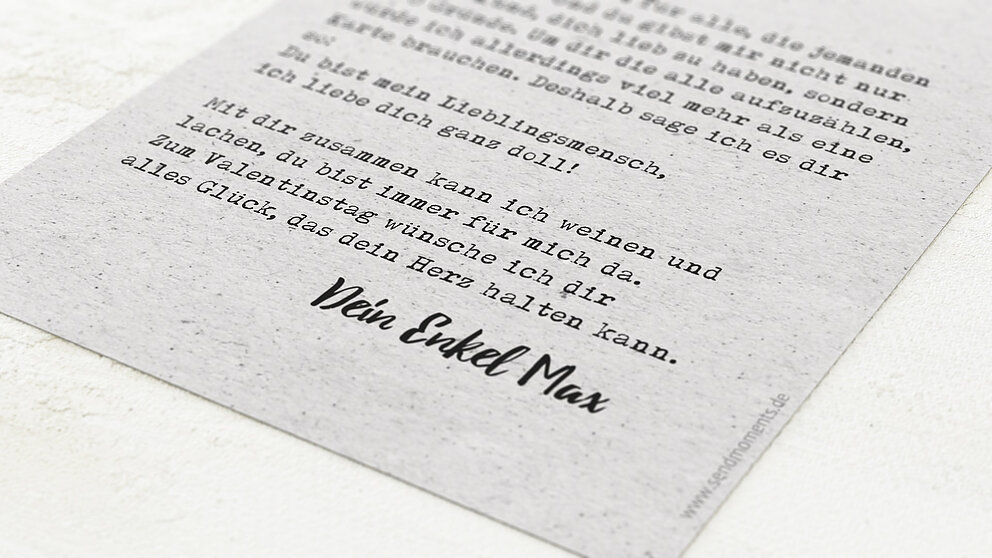 für alle, die jemanden
und du gibst mir nicht nur
dich lieb zu haben, sondern
Gründe. Um dir die alle aufzuzählen,
würde ich allerdings viel mehr als eine
Karte brauchen. Deshalb sage ich es dir
so:
Du bist mein Lieblingsmensch,
ich liebe dich ganz doll!
Mit dir zusammen kann ich weinen und
lachen, du bist immer für mich da.
Zum Valentinstag wünsche ich dir
alles Glück, das dein Herz halten kann.
Dein Enkel Max
www.sendmoments.de